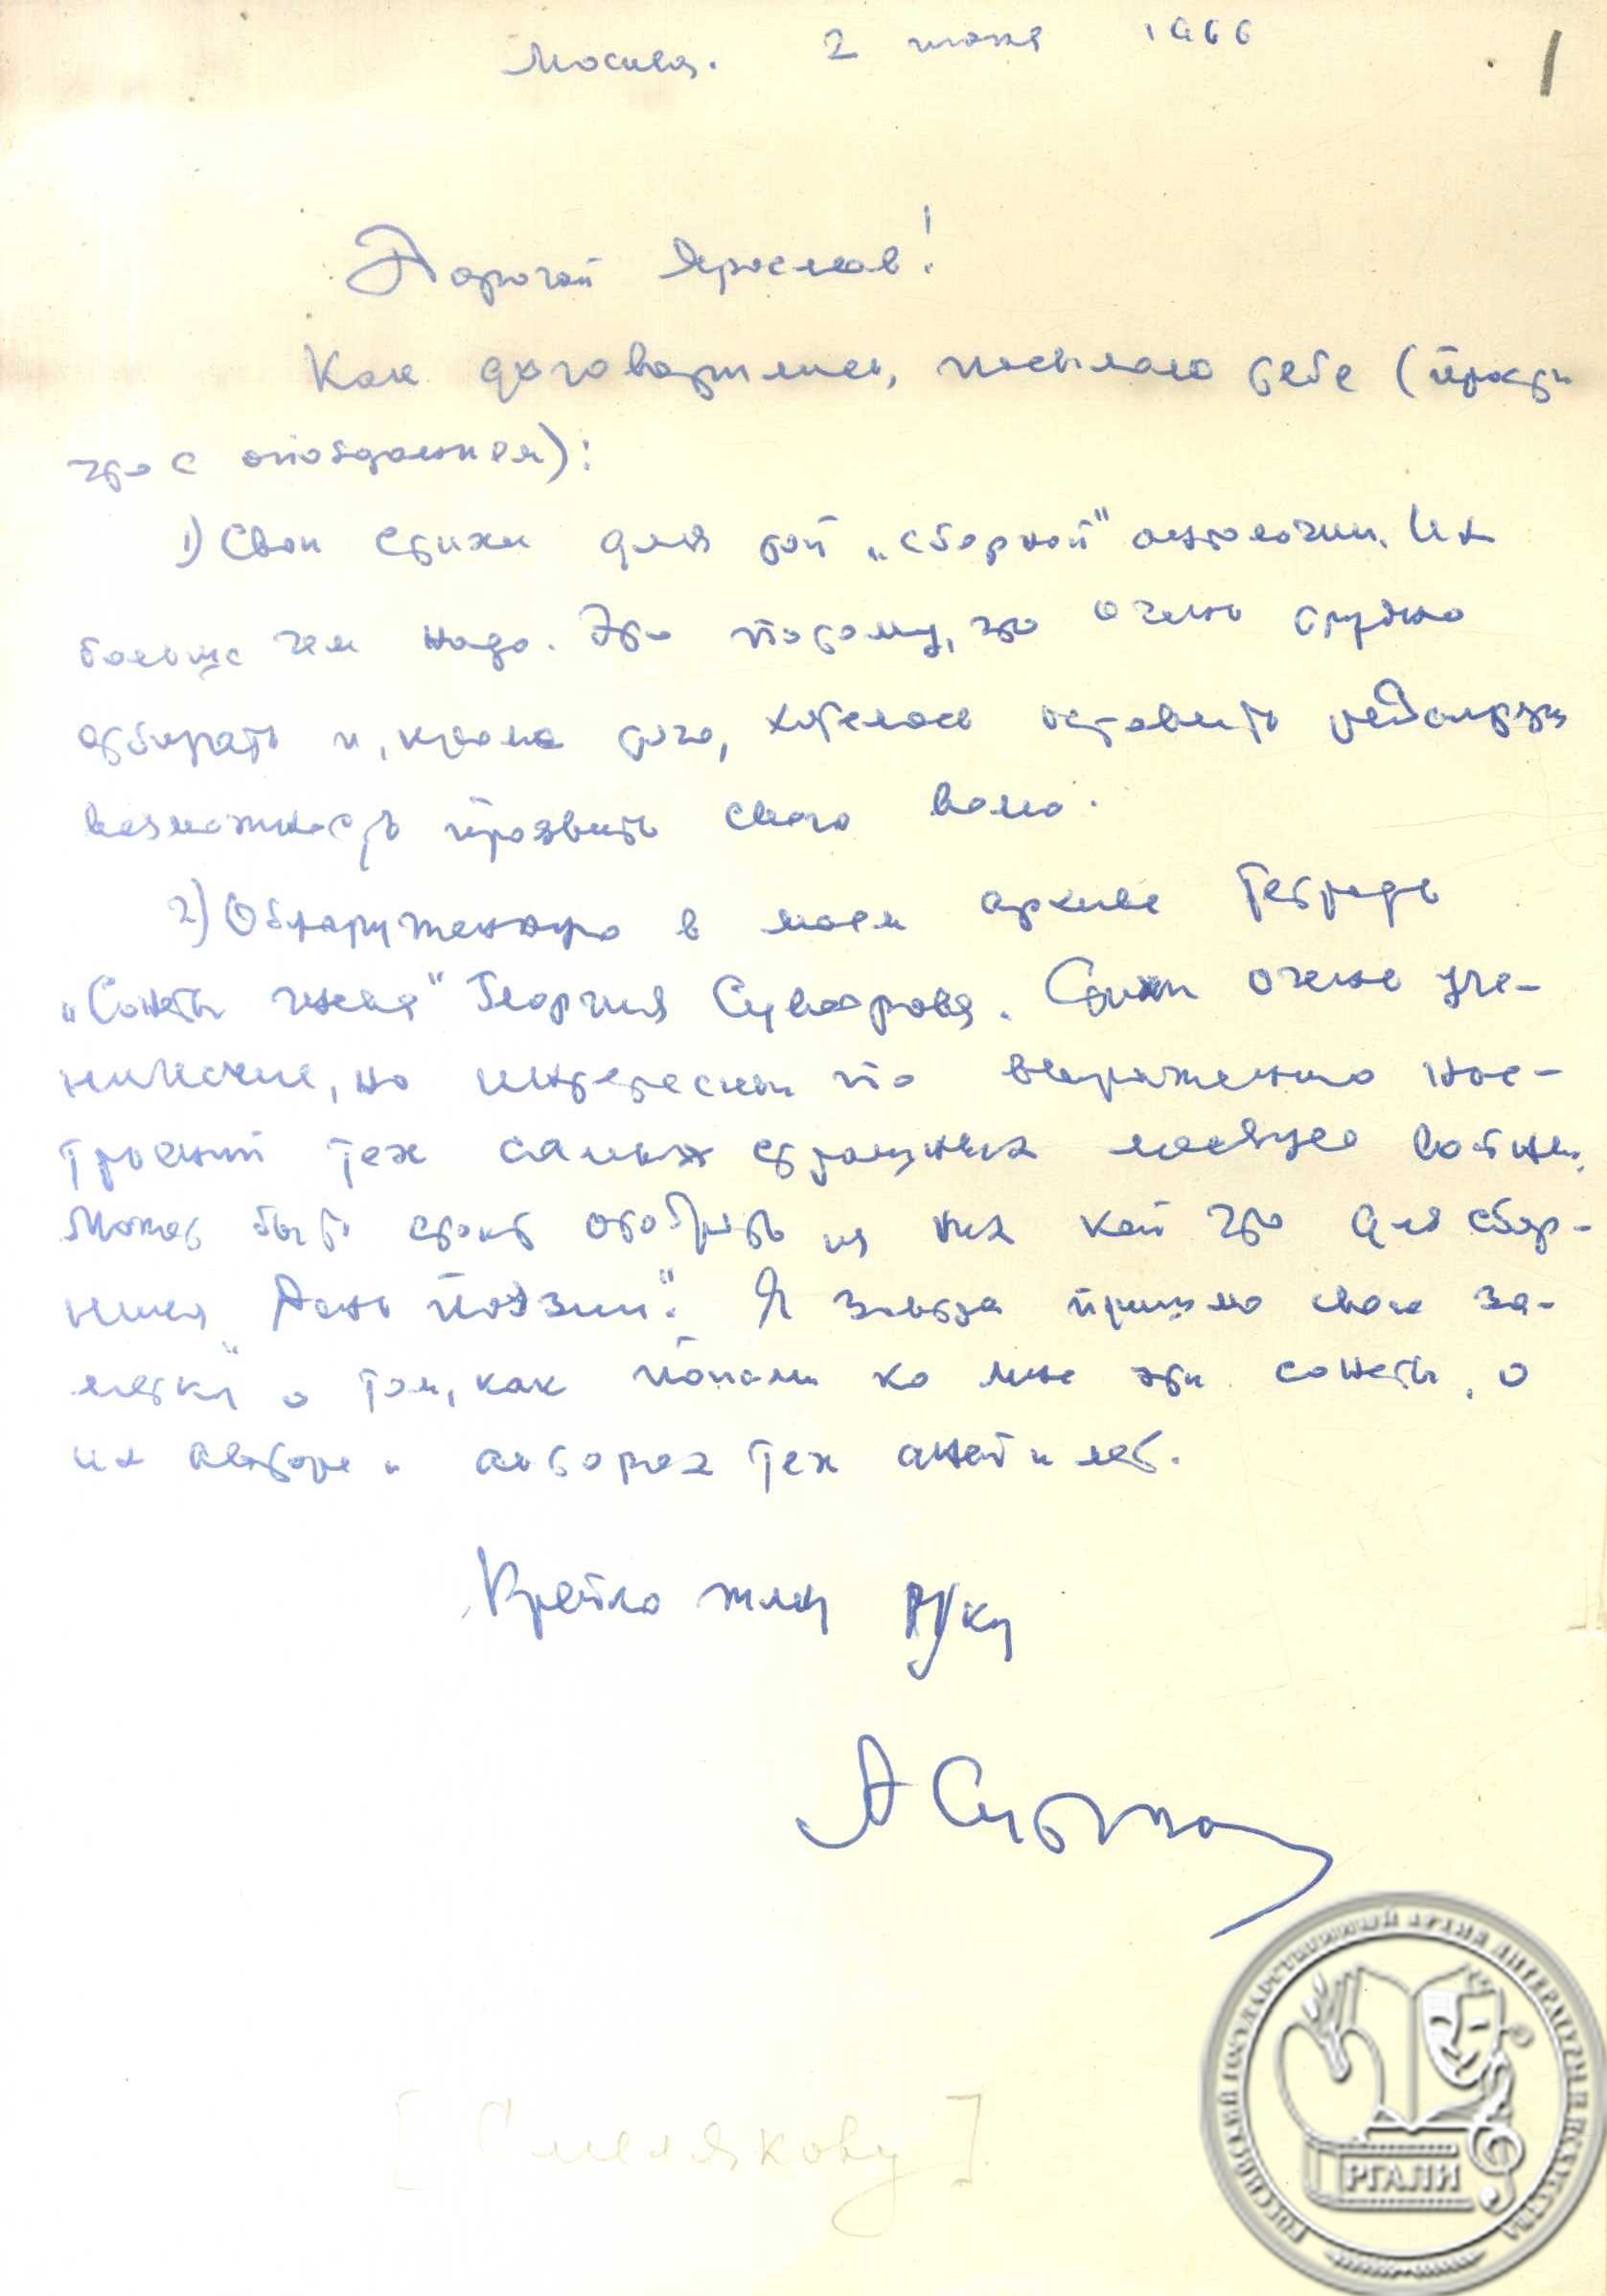 Москва. 2 июня 1966
1
Дорогой Ярослав!
Как договорились, посылаю тебе (прости
что с опозданием):
1) Свои стихи для той „сборной" антологии. Их
больше чем надо. Это потому, что очень трудно
отбирать и, кроме того, хотелось оставить
возможность проявить свою волю.
2) Обнаруженную в моем архиве тетрадь
„Сонеты гнева" Георгия Суворова. Стихи очень уче-
нические, но интересны по выражению нас-
троений тех самых страшных месяцев войны.
Может быть стоит отобрать из них кой что для сбор-
ника „День поэзии". Я завтра пришлю свои за-
метки о том, как попали ко мне эти сонеты, о
их авторе и авторах тех дней и лет.
Крепко жму руку
А Сурков
[Смелякову]
РОССИЙСКИЙ ГОСУДАРСТВЕННЫЙ АРХИВ ЛИТЕРАТУРЫ И ИСКУССТВА
РГАЛИ